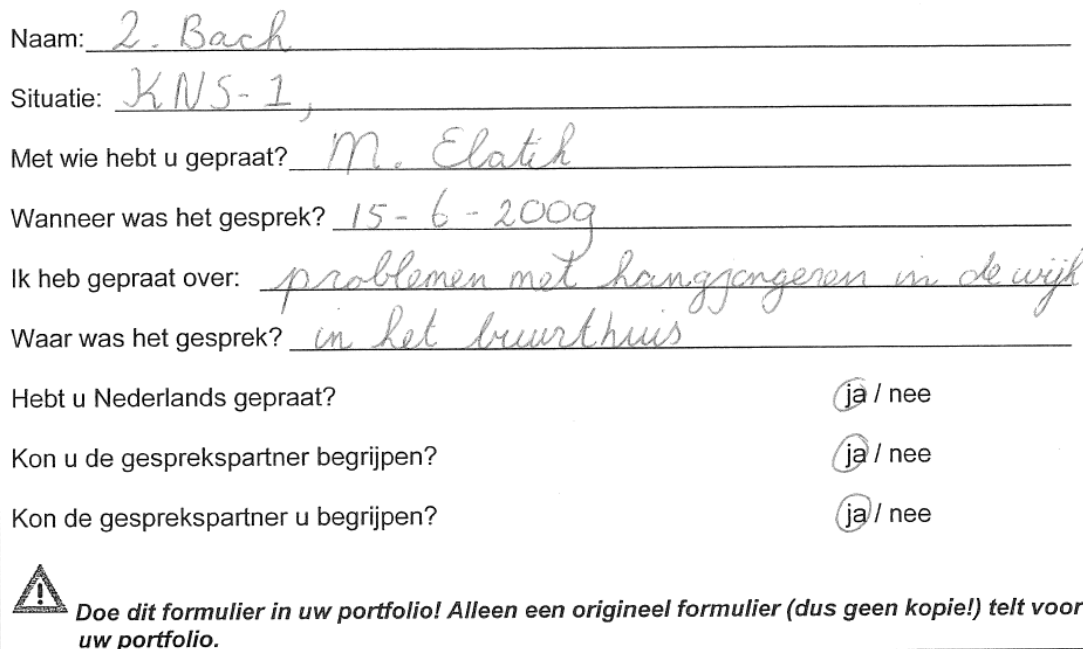 Naam: 2. Bach
Situatie: KNS-1,
Met wie hebt u gepraat? M. Elatik
Wanneer was het gesprek? 15-6-2009
Ik heb gepraat over: problemen met hangjongeren in de wijk
Waar was het gesprek? in het buurthuis
Hebt u Nederlands gepraat? ja / nee
Kon u de gesprekspartner begrijpen? ja / nee
Kon de gesprekspartner u begrijpen? ja / nee
Doe dit formulier in uw portfolio! Alleen een origineel formulier (dus geen kopie!) telt voor
uw portfolio.